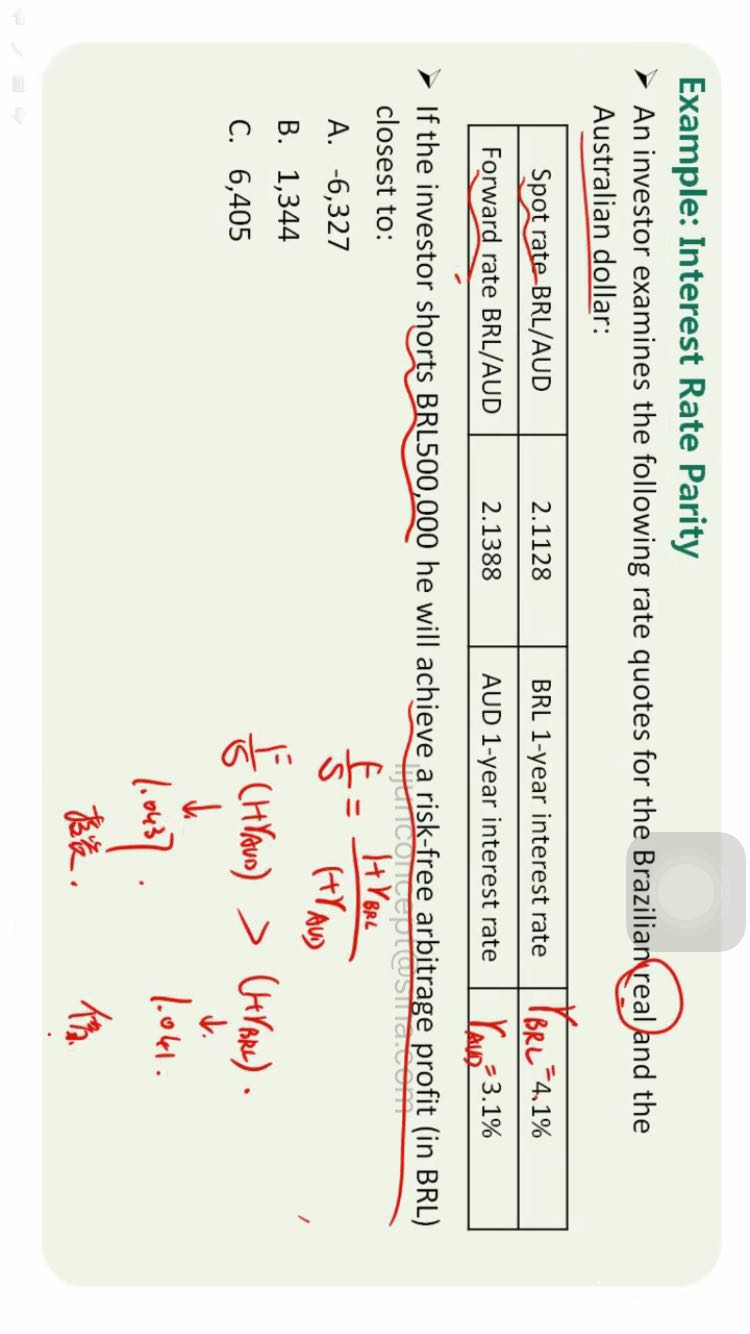 Example: Interest Rate Parity
➢ An investor examines the following rate quotes for the Brazilian real and the
Australian dollar:
Spot rate BRL/AUD 2.1128 BRL 1-year interest rate r_BRL = 4.1%
Forward rate BRL/AUD 2.1388 AUD 1-year interest rate r_AUD = 3.1%
➢ If the investor shorts BRL500,000 he will achieve a risk-free arbitrage profit (in BRL)
closest to:
lijunconcept@sina.com
A. -6,327
B. 1,344
C. 6,405
F/S = 1+r_BRL / (1+r_AUD)
F/S (1+r_AUD) > (1+r_BRL).
↓ ↓
1.0437. 1.041.
投资. 借.